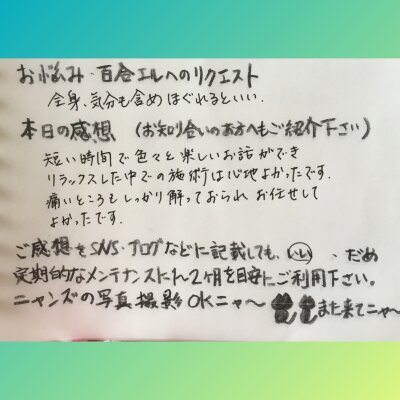 お悩み・百合エルへのリクエスト
全身、気分も含めほぐれるといい.
本日の感想 (お知り合いのお方へもご紹介下さい)
短い時間で色々と楽しいお話ができ
リラックスした中での施術は心地よかったです.
痛いところもしっかり解っておられ お任せして
よかったです.
ご感想をSNS・ブログなどに記載しても、いい 、だめ
定期的なメンテナンスに1〜2ヶ月を目安にご利用下さい。
ニャンズの写真撮影OKニャ〜 また来てニャ〜